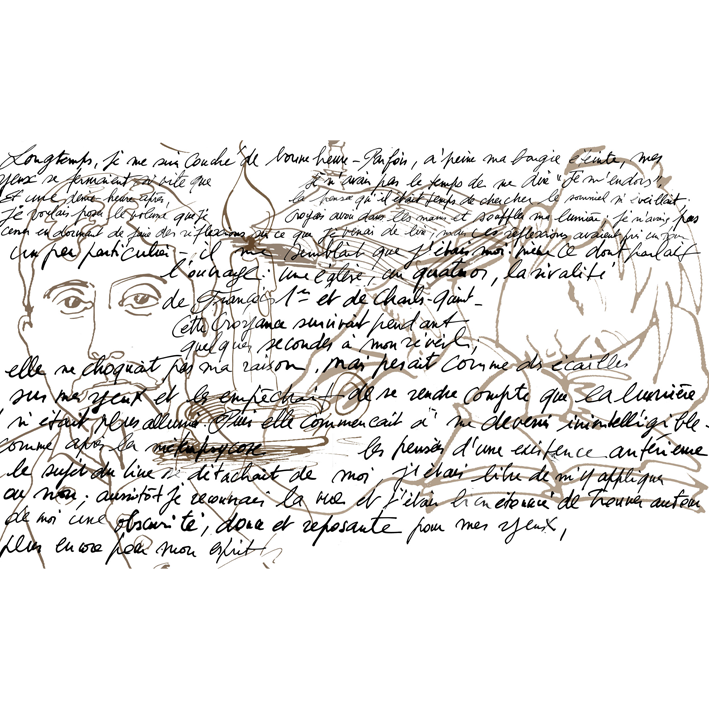 Longtemps, je me suis couché de bonne heure - Parfois, à peine ma bougie éteinte, mes
yeux se fermaient si vite que je n'avais pas le temps de me dire "Je m'endors"
Et une demi heure après la pensée qu'il était temps de chercher le sommeil m'éveillait.
Je voulais poser le volume que je croyais avoir dans les mains et souffler ma lumière. Je n'avais pas
cessé en dormant de faire des réflexions sur ce que je venais de lire, mais ces réflexions avaient pris un tour
un peu particulier; il me semblait que j'étais moi-même ce dont parlait
l'ouvrage: une église, un quatuor, la rivalité
de François 1er et de Charles-Quint -
Cette croyance survivait pendant
quelques secondes à mon réveil,
elle ne choquait pas ma raison, mais pesait comme des écailles
sur mes yeux et les empêchait de se rendre compte que la lumière
n'était plus allumée. Puis elle commençait à me devenir inintelligible.
comme après la métempsycose les pensées d'une existence antérieure
le sujet du livre se détachait de moi j'étais libre de m'y appliquer
ou non; aussitôt je recouvrais la vue et j'étais bien étonné de trouver autour
de moi une obscurité, douce et reposante pour mes yeux,
plus encore pour mon esprit